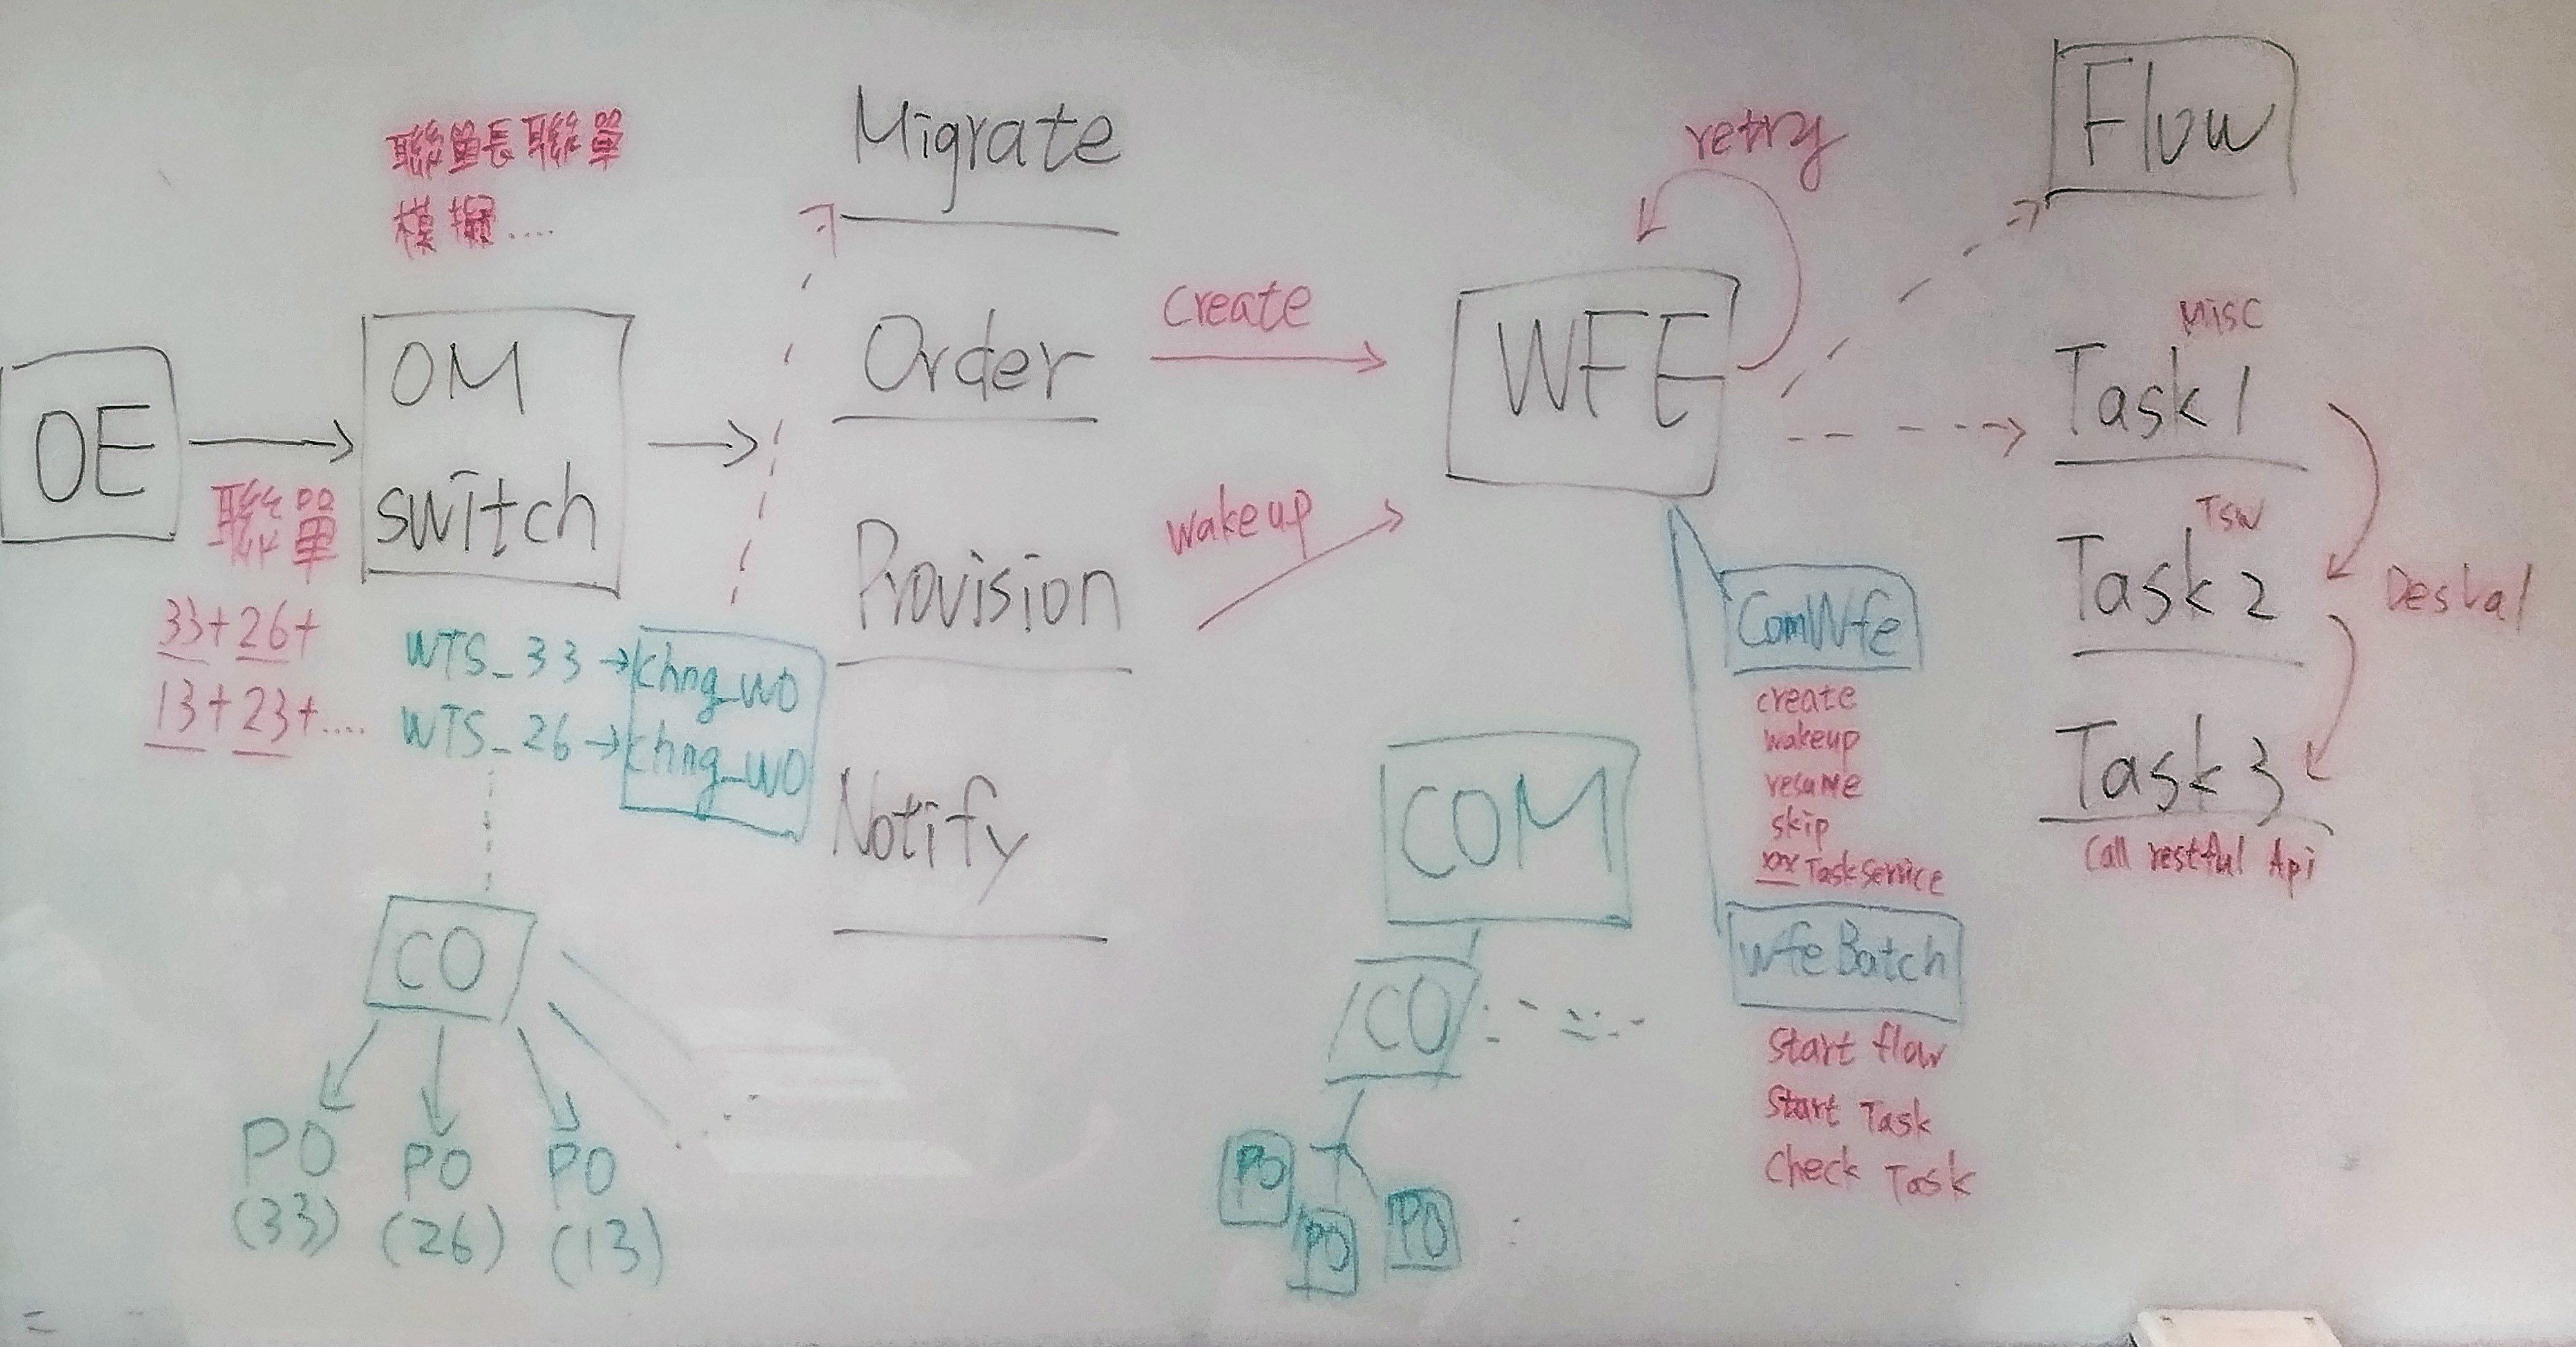 聯單長聯單
模擬....
OE
聯單
33+26+
13+23+....
OM
switch
WTS_33→chng_wo
WTS_26→chng_wo
CO
PO
(33)
PO
(26)
PO
(13)
Migrate
Order
Provision
Notify
create
wakeup
retry
WFE
COM
CO
PO
PO
PO
ComWfe
create
wakeup
resume
skip
xxxTaskService
wfeBatch
Start flow
Start Task
Check Task
Flow
Misc
Task1
TSW
Task2
Task3
Call restful Api